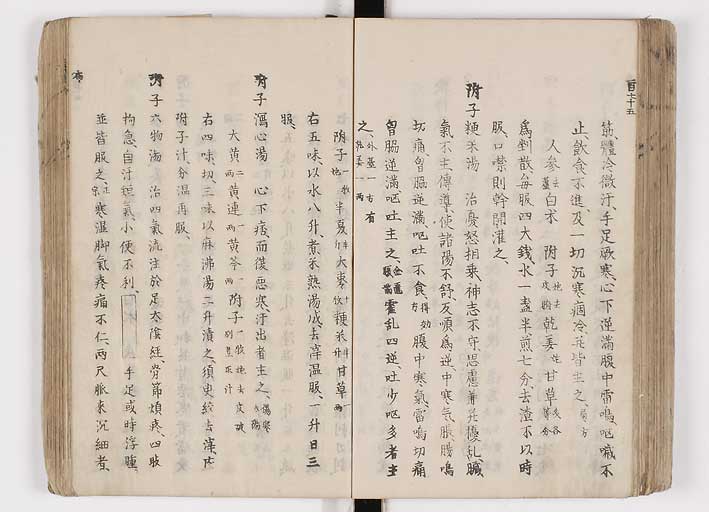 百六十五
筋體冷微汗手足厥寒心下逆滿腹中雷鳴嘔噦不
止飲食不進及一切沉寒痼冷並皆主之 局方
人參 去蘆 白朮 附子 炮去皮臍 乾姜 炮 甘草 炙各等分
爲剉散每服四大錢水一盞半煎七分去滓不以時
服口噤則斡開灌之
附子粳米湯 治憂怒相乘神志不守思慮兼并擾亂臟
氣不主傳導使諸陽不舒反順爲逆中寒氣脹腸鳴
切痛胷脇逆滿嘔吐不食 得効 腹中寒氣雷鳴切痛
胷脇逆滿嘔吐主之 金匱 霍乱四逆吐少嘔多者主
之 外臺一方有乾姜一兩
附子 一枚炮 半夏 半升 大棗 十枚 粳米 半升 甘草 一兩
右五味以水八升煮米熟湯成去滓温服一升日三
服
附子瀉心湯 心下痞而復惡寒汗出者主之 傷寒太陽
大黄 二兩 黄連 一兩 黄芩 一兩 附子 一枚炮去皮破別煮取汁
右四味切三味以麻沸湯二升漬之須臾絞去滓内
附子汁分温再服
附子六物湯 治四氣流注於足太陰經骨節煩疼四肢
拘急自汗短氣小便不利 手足或時浮腫
並皆服之 正宗 寒温脚氣疼痛不仁兩尺脈来沉細者